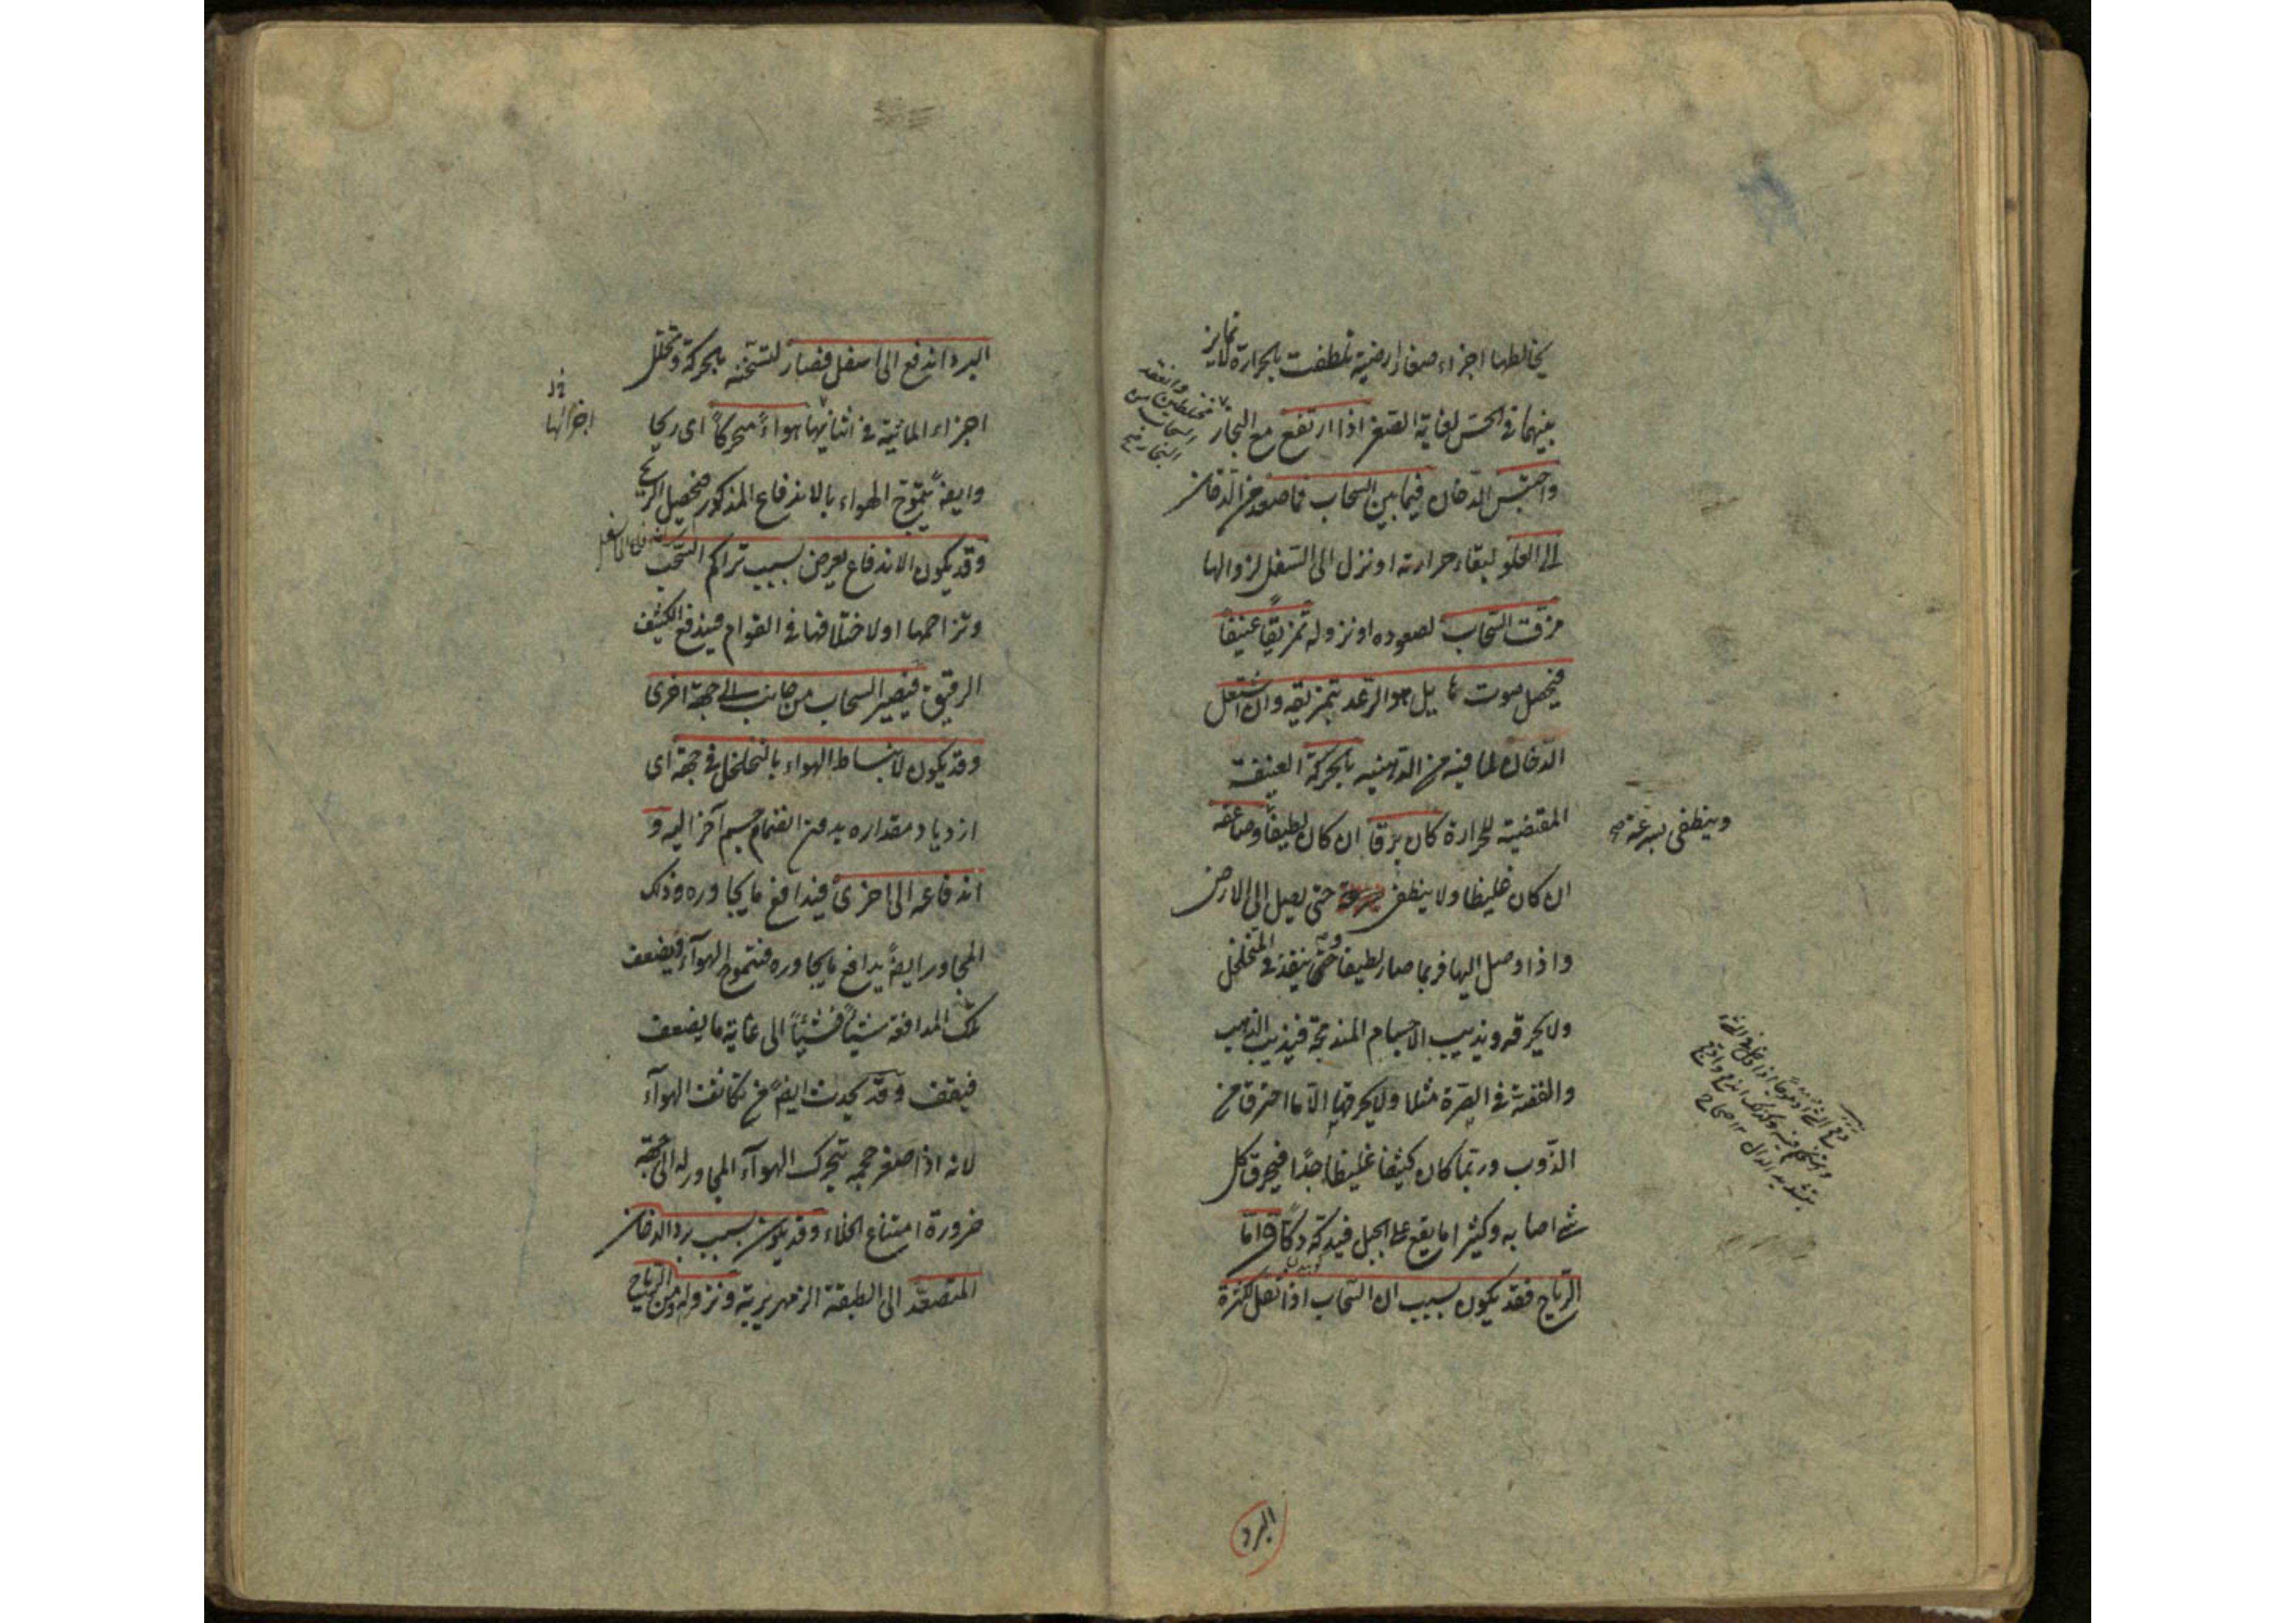 يخالطها اجزاء صغار ارضية تلطفت بالحرارة لا تمايز
بينهما فى الحس لغاية الصغر اذا ارتفع مع البخار
مختلطين وانعقد
السحاب من
البخار صح
واحتبس الدخان فيما بين السحاب فما صعد من الدخان
الى العلو لبقاء حرارته او نزل الى السفل لزوالها
مزق السحاب لصعوده او نزوله تمزيقا عنيفا
فيحصل صوت هايل هو الرعد بتمزيقه وان اشتعل
الدخان لما فيه من الدهنية بالحركة العنيفة
المقتضية للحرارة كان برقا ان كان لطيفا وصاعقة
وينطفى بسرعة صح
ان كان غليظا ولا ينطفى حتى يصل الى الارض
واذا وصل اليها فربما صار لطيفا حتى ينفذ فى المتخلخل
ولا يحرقه ويذيب الاجسام المندمجة فيذيب الذهب
والفضة فى الصرة مثلا ولا يحرقها الا ما احترق من
الذوب وربما كان كثيفا غليظا جدا فيحرق كل
شئ اصابه وكثيرا ما يقع على الجبل فيدكه دكا واما
الرياح فقد يكون بسبب ان السحاب اذا ثقل لكثرة
البرد
البرد اندفع الى اسفل فصار لتسخنه بالحركة وتخلل
اجزاء المائية فى اثنائها هواء متحركا اى ريحا
اجزائها
وايضا يتموج الهواء بالاندفاع المذكور فيحصل الريح
وقد يكون الاندفاع يعرض بسبب تراكم السحب
وتزاحمها او لاختلافها فى القوام فيندفع الكثيف
الرقيق فيصير السحاب من جانب الى جهة اخرى
وقد يكون لانبساط الهواء بالتخلخل فى جهة اى
ازدياد مقداره بدون انضمام جسم آخر اليه و
اندفاعه الى اخرى فيدافع ما يجاوره وذلك
المجاور ايضا يدافع ما يجاوره فيتموج الهواء فيضعف
تلك المدافعة شيئا فشيئا الى غاية ما يضعف
فيقف وقد يحدث ايضا من تكاثف الهواء
لانه اذا صغر حجمه يتحرك الهواء المجاور له الى جهته
ضرورة امتناع الخلاء وقد يكون بسبب برد الدخان
المتصعد الى الطبقة الزمهريرية ونزوله ومن الرياح